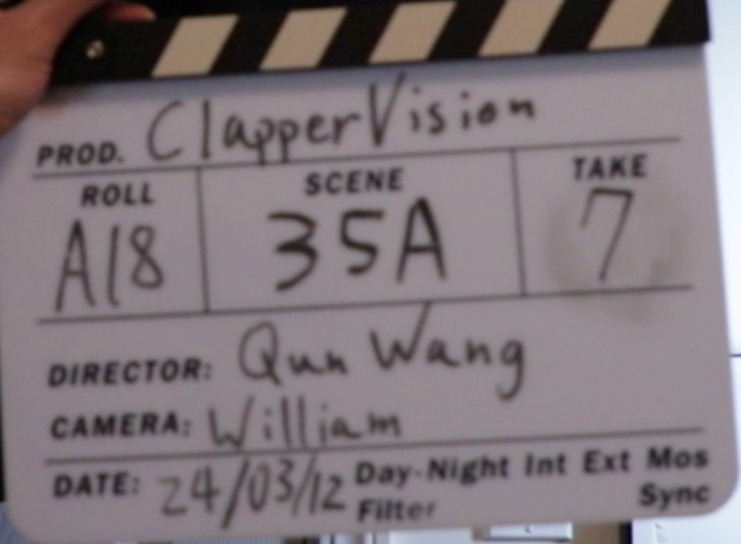 PROD. ClapperVision
ROLL SCENE TAKE
A18 35A 7
DIRECTOR: Qun Wang
CAMERA: William
DATE: 24/03/12 Day-Night Int Ext Mos
Filter Sync